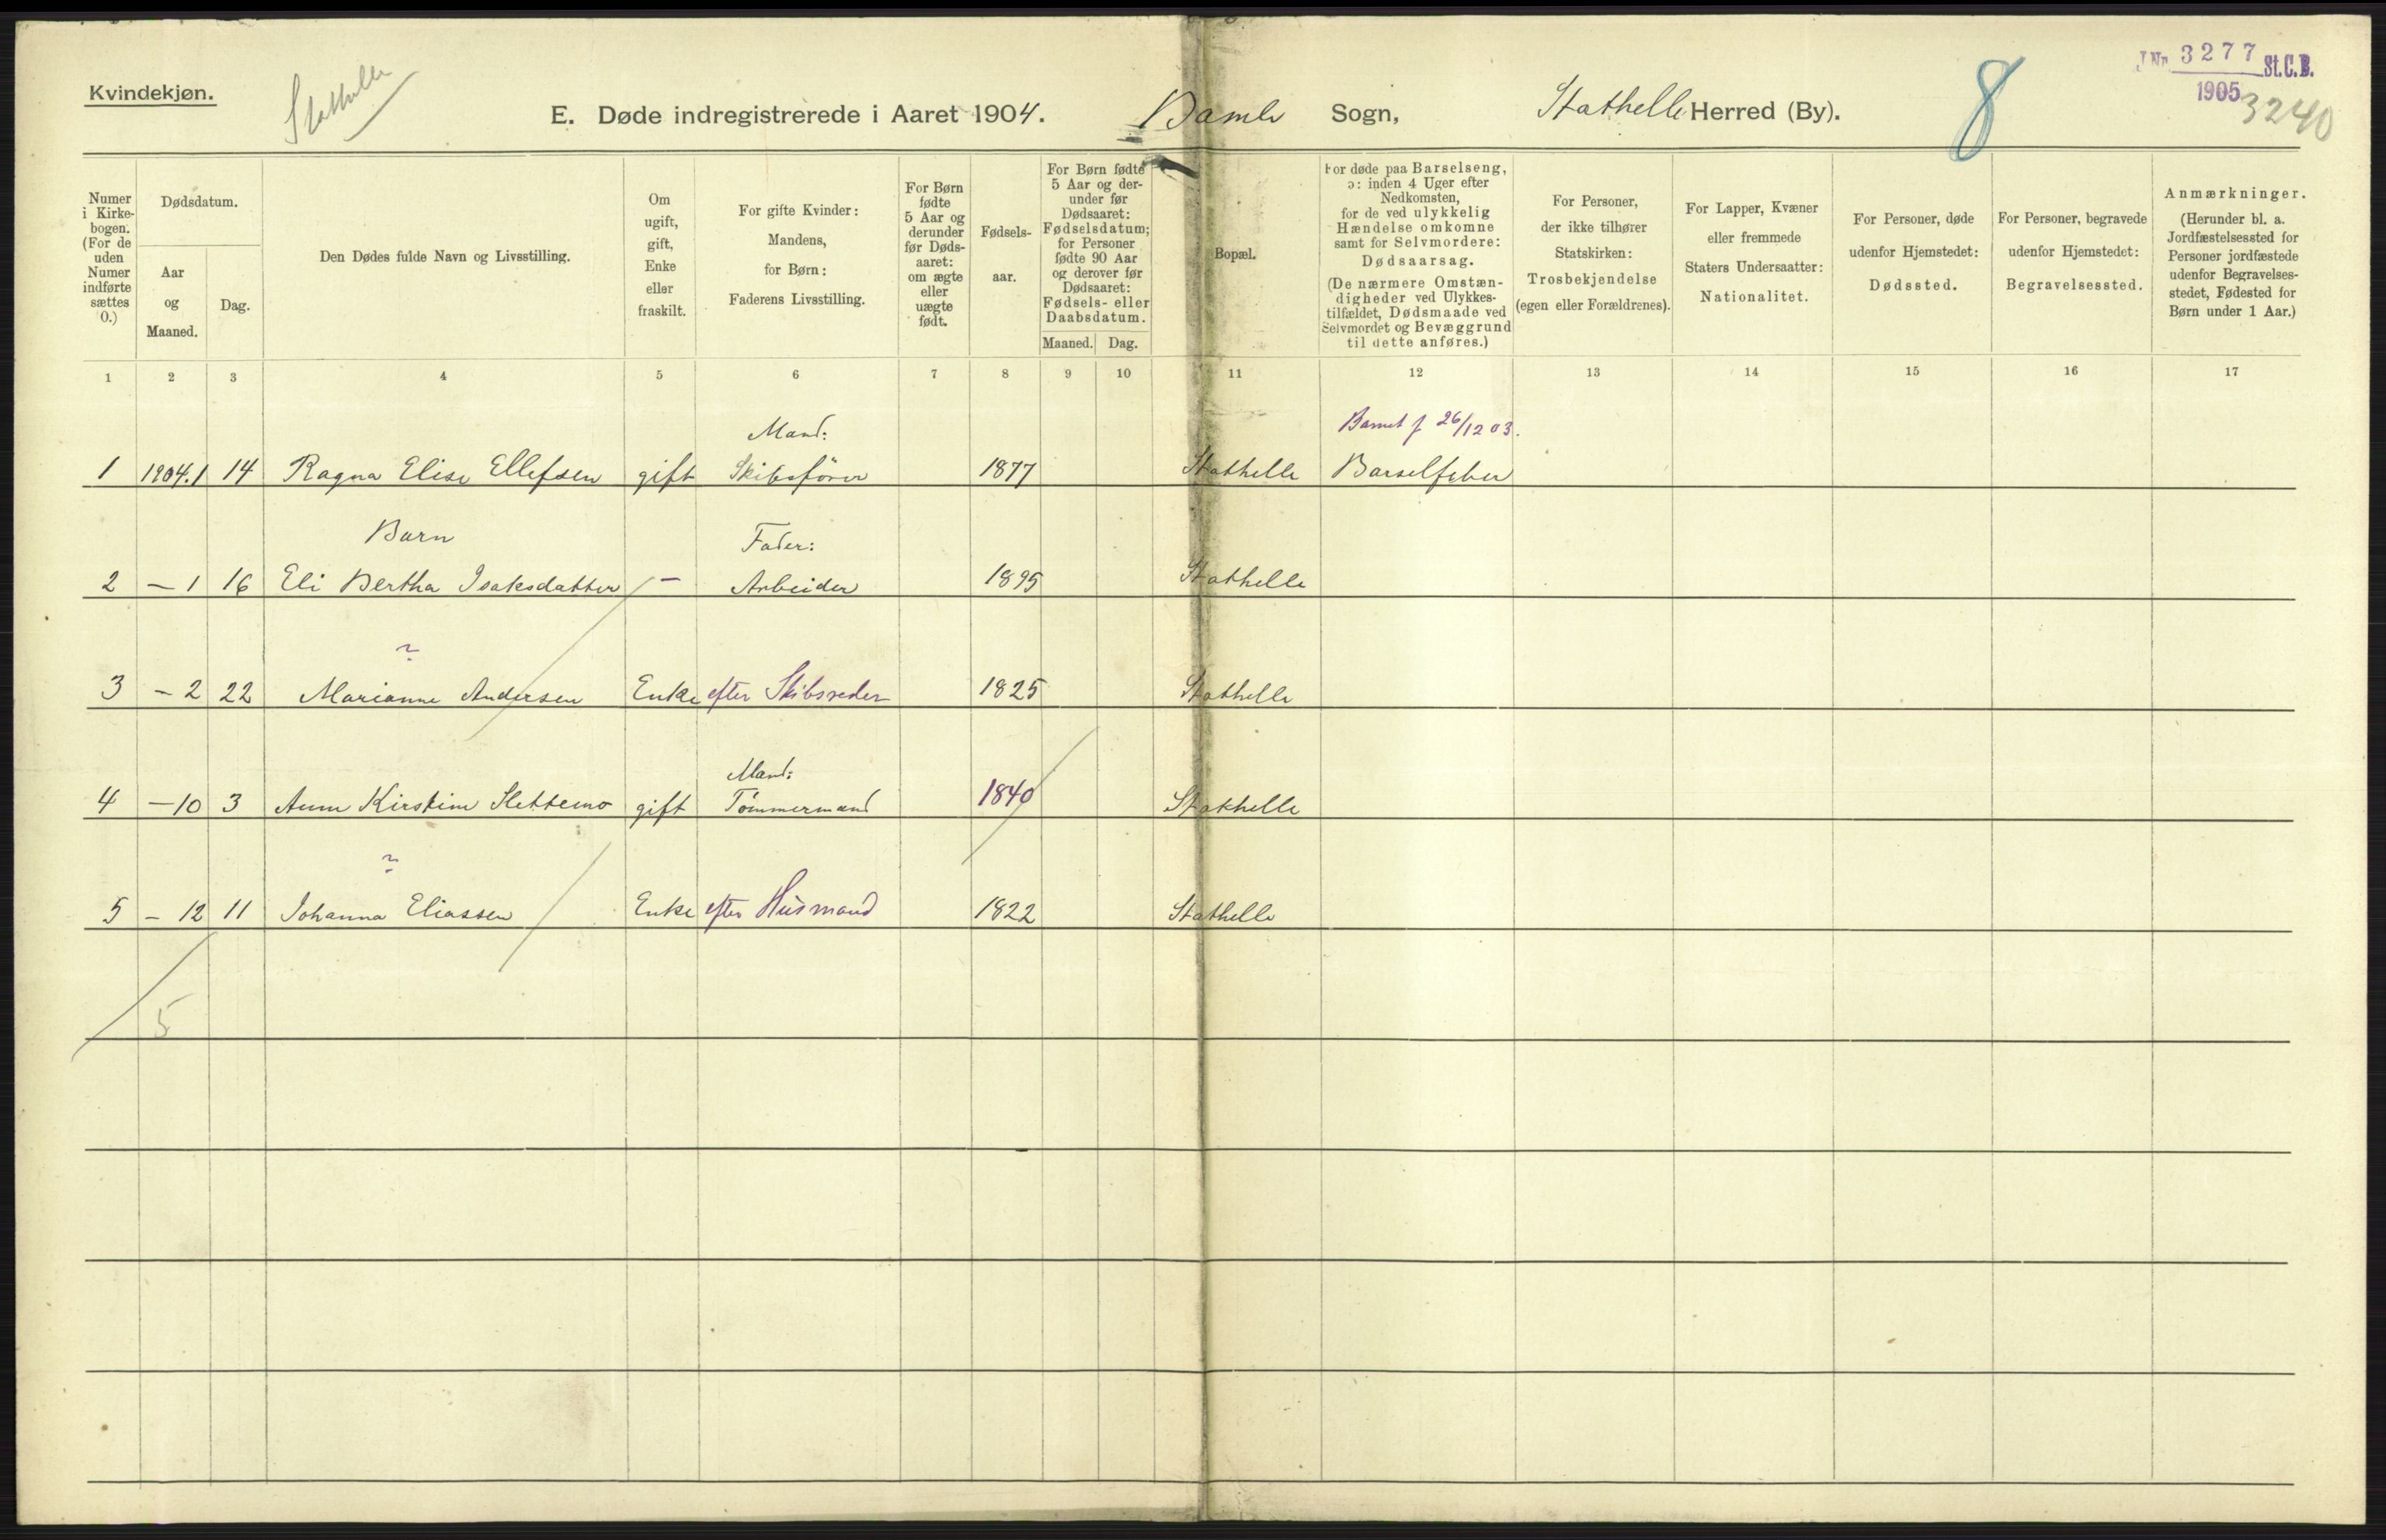 Kvindekjøn.
Stathelle
E. Døde indregistrerede i Aaret 1904. Bamle Sogn, Stathelle Herred (By).
8
J Nr. 3277 St.C.B.
1905
3240
Numer i Kirkebogen. (For de uden Numer indførte sættes 0.)
Dødsdatum.
Aar og Maaned.
Dag.
Den Dødes fulde Navn og Livsstilling.
Om ugift, gift, Enke eller fraskilt.
For gifte Kvinder: Mandens, for Børn: Faderens Livsstilling.
For Børn fødte 5 Aar og derunder før Dødsaaret: om ægte eller uægte født.
Fødsels-aar.
For Børn fødte 5 Aar og derunder før Dødsaaret: Fødselsdatum; for Personer fødte 90 Aar og derover før Dødsaaret: Fødsels- eller Daabsdatum.
Maaned. Dag.
Bopæl.
For døde paa Barselseng, ɔ: inden 4 Uger efter Nedkomsten, for de ved ulykkelig Hændelse omkomne samt for Selvmordere: Dødsaarsag.
(De nærmere Omstændigheder ved Ulykkestilfældet, Dødsmaade ved Selvmordet og Bevæggrund til dette anføres.)
For Personer, der ikke tilhører Statskirken: Trosbekjendelse (egen eller Forældrenes).
For Lapper, Kvæner eller fremmede Staters Undersaatter: Nationalitet.
For Personer, døde udenfor Hjemstedet: Dødssted.
For Personer, begravede udenfor Hjemstedet: Begravelsessted.
Anmærkninger.
(Herunder bl. a. Jordfæstelsessted for Personer jordfæstede udenfor Begravelsesstedet, Fødested for Børn under 1 Aar.)
1 2 3 4 5 6 7 8 9 10 11 12 13 14 15 16 17
Mand: Barnet f 26/12 03.
1 1904.1 14 Ragna Elise Ellefsen gift Skibsfører 1877 Stathelle Barselfeber
Barn Fader:
2 – 1 16 Eli Bertha Isaksdatter – Arbeider 1895 Stathelle
?
3 – 2 22 Marianne Andersen Enke efter Skibsreder 1825 Stathelle
Mand:
4 – 10 3 Anne Kirstine Slettemo gift Tømmermand 1840 Stathelle
?
5 – 12 11 Johanna Eliassen Enke efter Husmand 1822 Stathelle
5